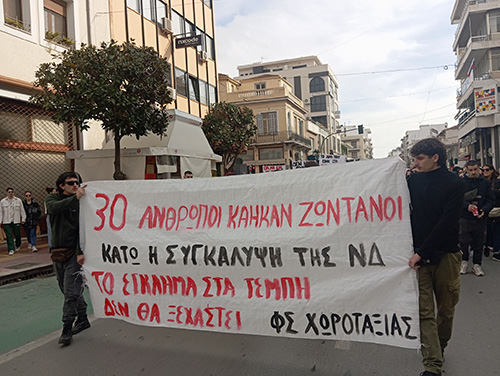 30 ΑΝΘΡΩΠΟΙ ΚΑΗΚΑΝ ΖΩΝΤΑΝΟΙ
ΚΑΤΩ Η ΣΥΓΚΑΛΥΨΗ ΤΗΣ ΝΔ
ΤΟ ΕΓΚΛΗΜΑ ΣΤΑ ΤΕΜΠΗ
ΔΕΝ ΘΑ ΞΕΧΑΣΤΕΙ ΦΣ ΧΩΡΟΤΑΞΙΑΣ